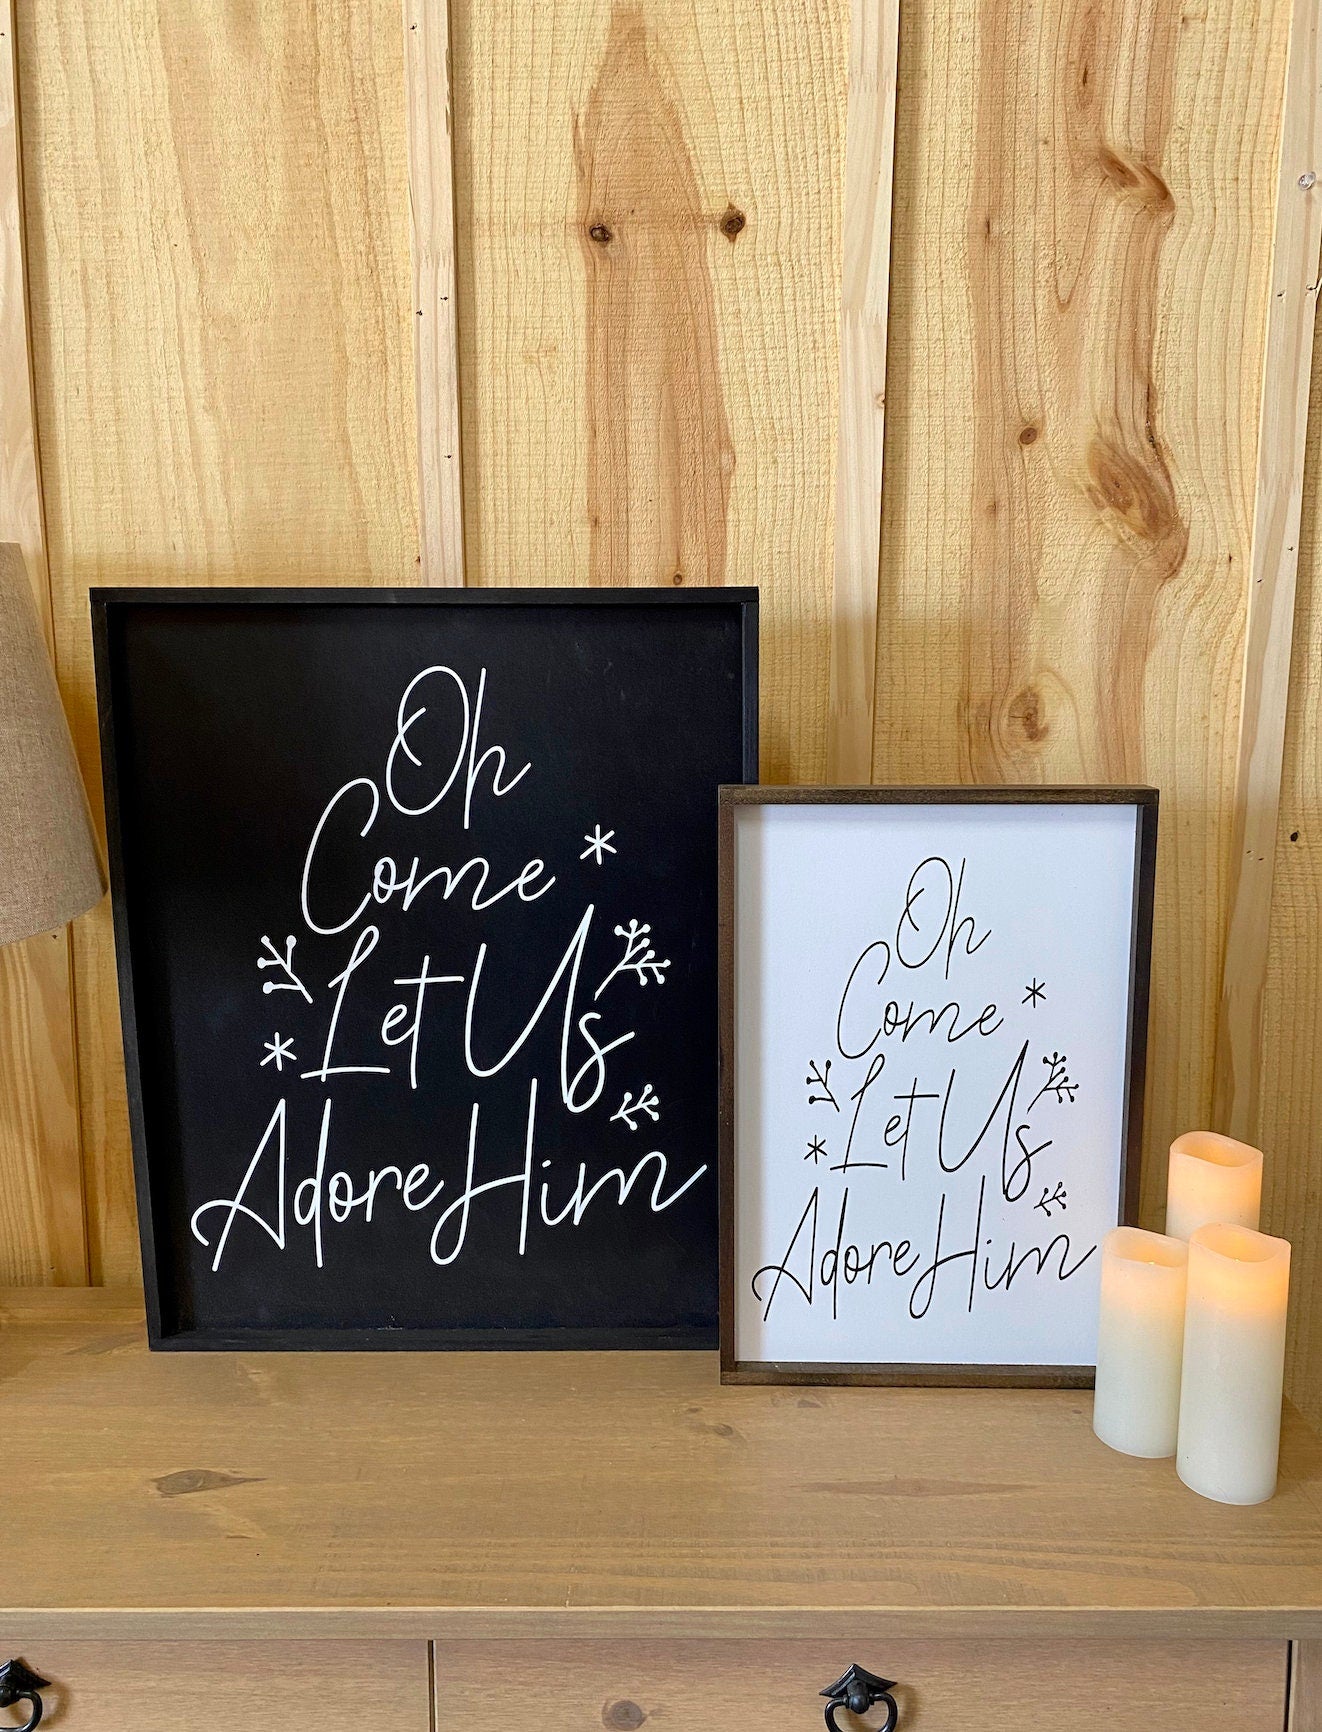 Oh
Come
Let Us
Adore Him
Oh
Come
Let Us
Adore Him